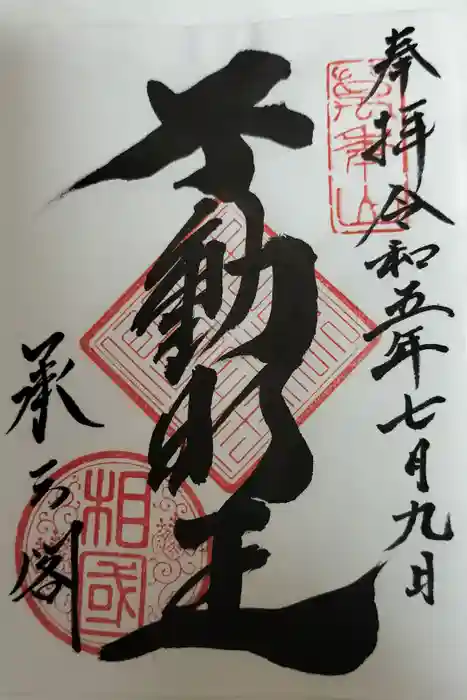 奉拝 令和五年七月九日
萬年山
不動明王
承天閣
相國